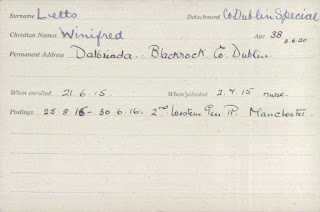 Surname Letts Detachment Co Dublin Special
Christian Names Winifred Age 38
2.6.20
Permanent Address Dalriada. Blackrock. Co. Dublin.
When enrolled 21.6.15. When selected 2.7.15 nurse.
Postings 25.8.15 - 30.6.16. 2nd Western Gen. Manchester.